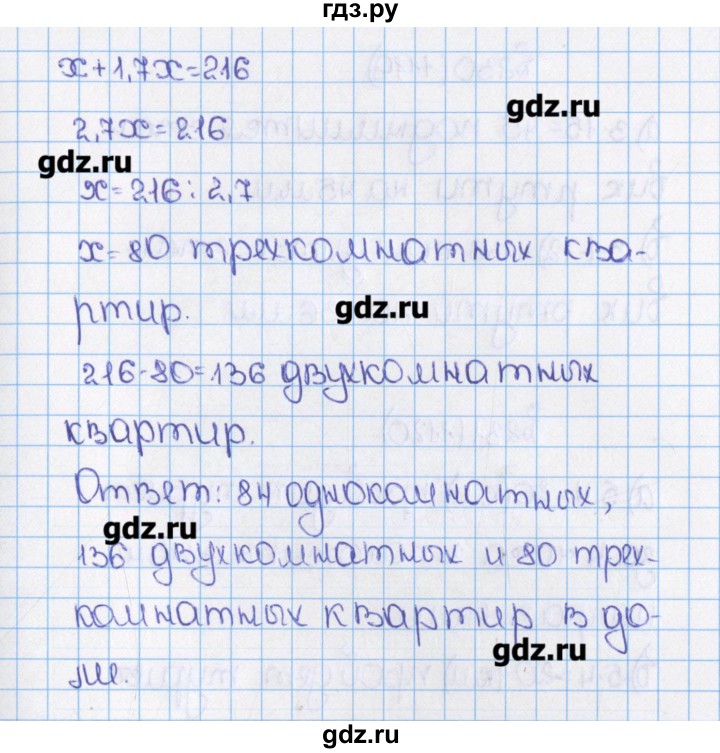 гдз.ру
x+1,7x=216
gdz.ru
2,7x=216
gdz.ru
x=216:2,7
x=80 трехкомнатных ква-
ртир.
gdz.ru
216-80=136 двухкомнатных
квартир.
Ответ: 84 однокомнатных,
gdz.ru
136 двухкомнатных и 80 трех-
комнатных квартир в до-
ме.
gdz.ru
gdz.ru